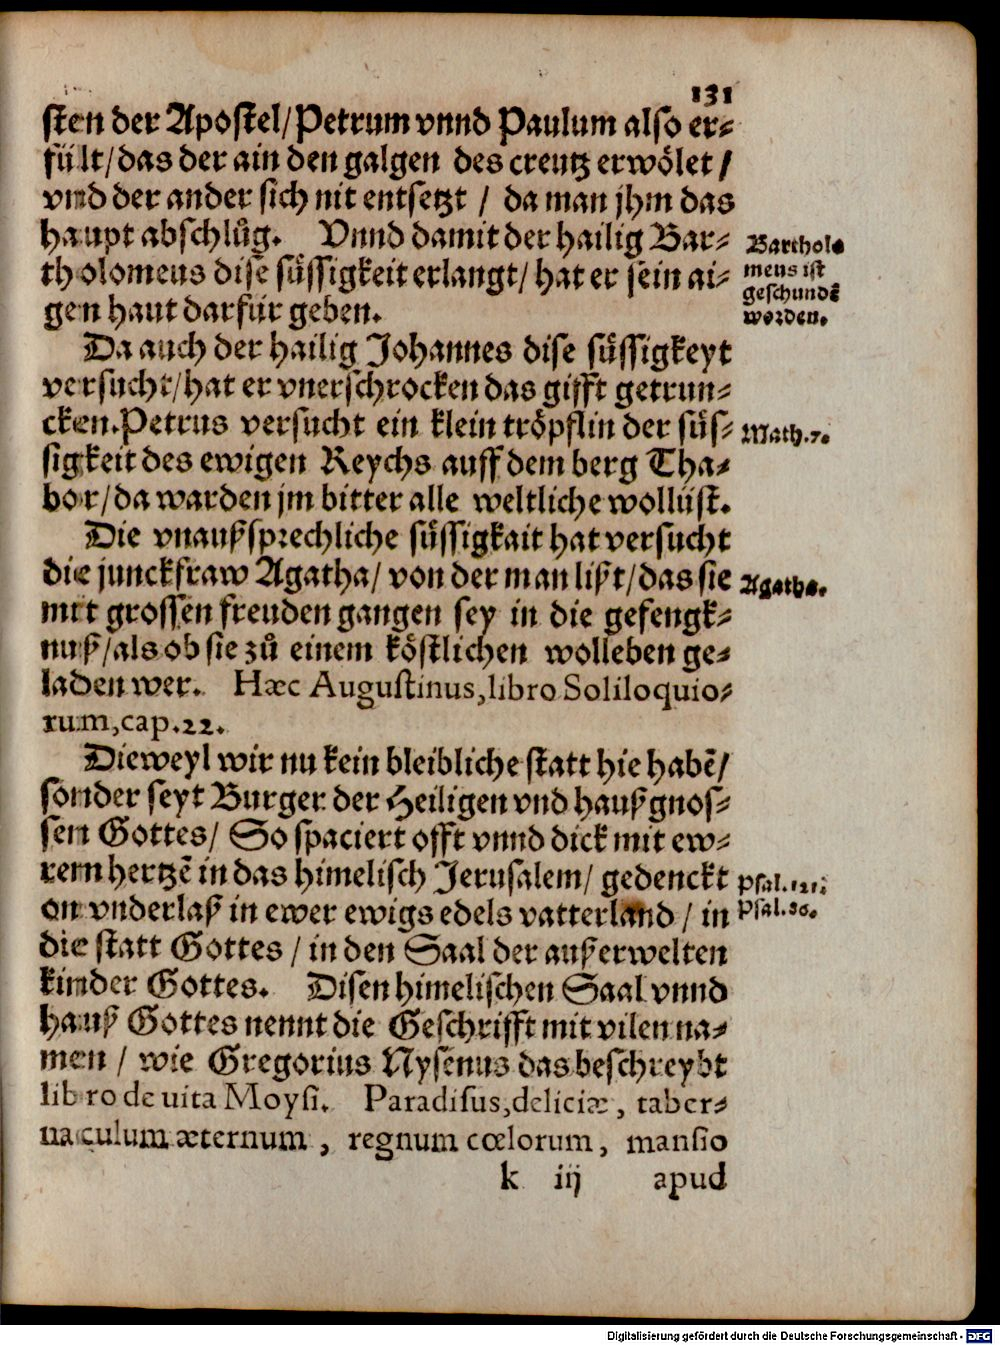 131
sten der Apostel/Petrum vnnd Paulum also er-
fült/das der ain den galgen des creutz erwölet/
vnd der ander sich nit entsetzt / da man jhm das
haupt abschlůg. Vnnd damit der hailig Bar-
tholomeus dise süssigkeit erlangt/hat er sein ai-
gen haut darfür geben.
Barthol⸗
meus ist
geschundẽ
worden.
Da auch der hailig Johannes dise süssigkeyt
versucht/hat er vnerschrocken das gifft getrun-
cken. Petrus versucht ein klein tröpflin der süs-
sigkeit des ewigen Reychs auff dem berg Tha-
bor/da warden jm bitter alle weltliche wollüst.
Math.7.
Die vnaußsprechliche süssigkait hat versucht
die junckfraw Agatha/ von der man lißt/das sie
mit grossen freuden gangen sey in die gefengk-
nuß/als ob sie zů einem köstlichen wolleben ge-
laden wer. Hæc Augustinus, libro Soliloquio-
rum, cap.22.
Agatha.
Dieweyl wir nu kein bleibliche statt hie habẽ/
sonder seyt Burger der Heiligen vnd haußgnos-
sen Gottes/ So spaciert offt vnnd dick mit ew-
rem hertzẽ in das himelisch Jerusalem/ gedenckt
on vnderlaß in ewer ewigs edels vatterland / in
die statt Gottes / in den Saal der außerwelten
kinder Gottes. Disen himelischen Saal vnnd
hauß Gottes nennt die Geschrifft mit vilen na-
men / wie Gregorius Nysenus das beschreybt
libro de uita Moysi. Paradisus, deliciæ, taber-
naculum æternum, regnum cœlorum, mansio
Psal.121.
Psal.86.
k iij apud
Digitalisierung gefördert durch die Deutsche Forschungsgemeinschaft - DFG